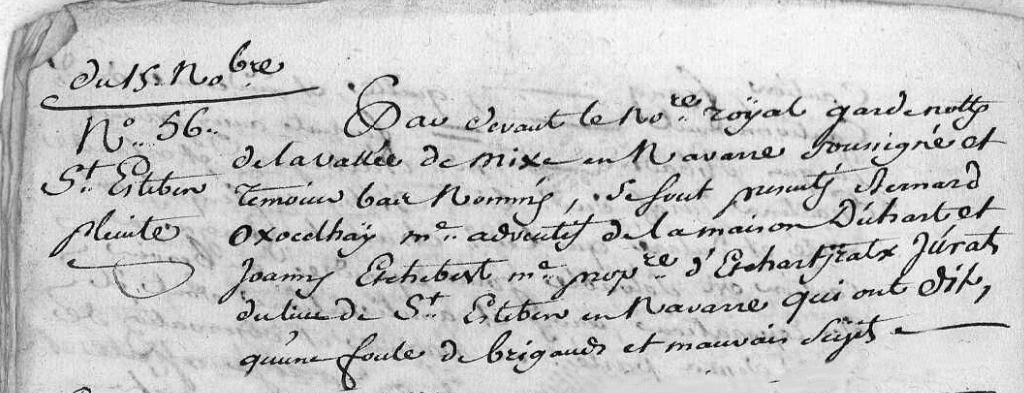 du 15. No.bre
N.o 56..
St. Esteben
pleinte
Par devant le No.re roÿal gardenotte
de la vallée de mixe en Navarre Sousigné et
temoins bas Nommés, se sont presentés Bernard
Oxocelhaÿ m.e adventif de la maison Duhart et
Joannis Etchebest m.e prop.re d'Etchartjralx Jurats
du lieu de St. Esteben en Navarre qui ont dit,
qu'une foule de brigands et mauvais sujets